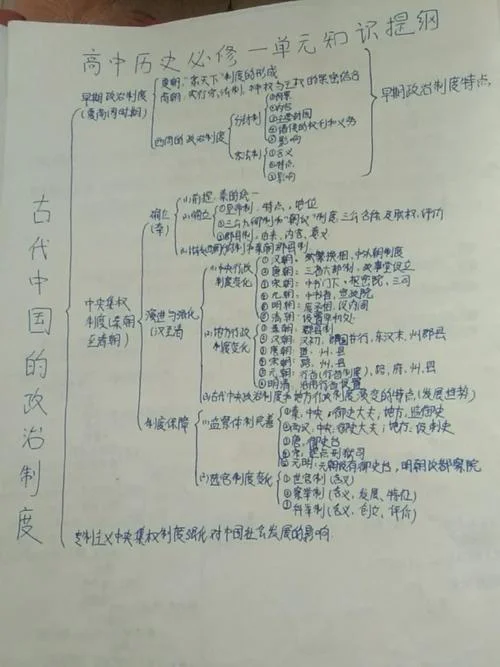 高中历史必修一单元知识提纲
古代中国的政治制度
早期政治制度
(夏商周时期)
夏朝:"家天下"制度的形成
商朝:实行
神权与王权的紧密结合
西周的政治制度
分封制
①
②内容
③主要封国
④诸侯的权利和义务
⑤影响
宗法制
①含义
②特点
③影响
早期政治制度特点
中央集权
制度(秦朝
至清朝)
确立
(秦)
⑴前提:秦的统一
⑵确立
①皇帝制:特点、地位
②三公九卿制和"朝议"制度
③郡县制:由来、内容、意义
演进与强化
(汉至清)
⑴中央行政
制度变化
①汉朝:
中外朝制度
②唐朝:三省六部制,政事堂设立
③宋朝:中书门下,枢密院,三司
④元朝:中书省,宣政院
⑤明朝:废丞相,设内阁
⑥清朝:设置军机处
⑵地方行政
制度变化
①秦朝:郡县制
②汉朝:汉初,郡国并行,东汉末,州郡县
③唐朝:道、州、县
④宋朝:路、州、县
⑤元朝:行省(行省制度)、路、府、州、县
⑥明清:沿用行省设置
⑶古代中央政治制度和地方行政制度演变的特点(发展趋势)
制度保障
⑴监察体制完善
①秦:中央:御史大夫;地方:监御史
②两汉:中央:御史大夫;地方:设刺史
③唐:御史台
④宋:提点刑狱司
⑤元明:元朝设有御史台,明朝设都察院
⑵选官制度变化
①世官制(含义)
②察举制(含义、发展、特征)
③科举制(含义、创立、评价)
专制主义中央集权制度强化对中国社会发展的影响